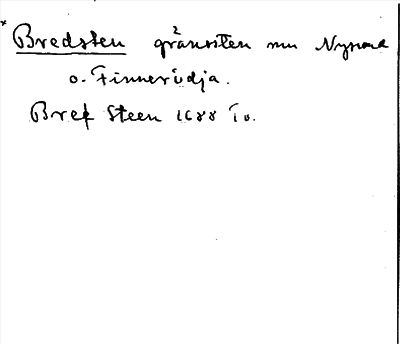 * Bredsten gränssten mn Nysund
o. Finnerödja.
Bref Steen 1688 Tv.